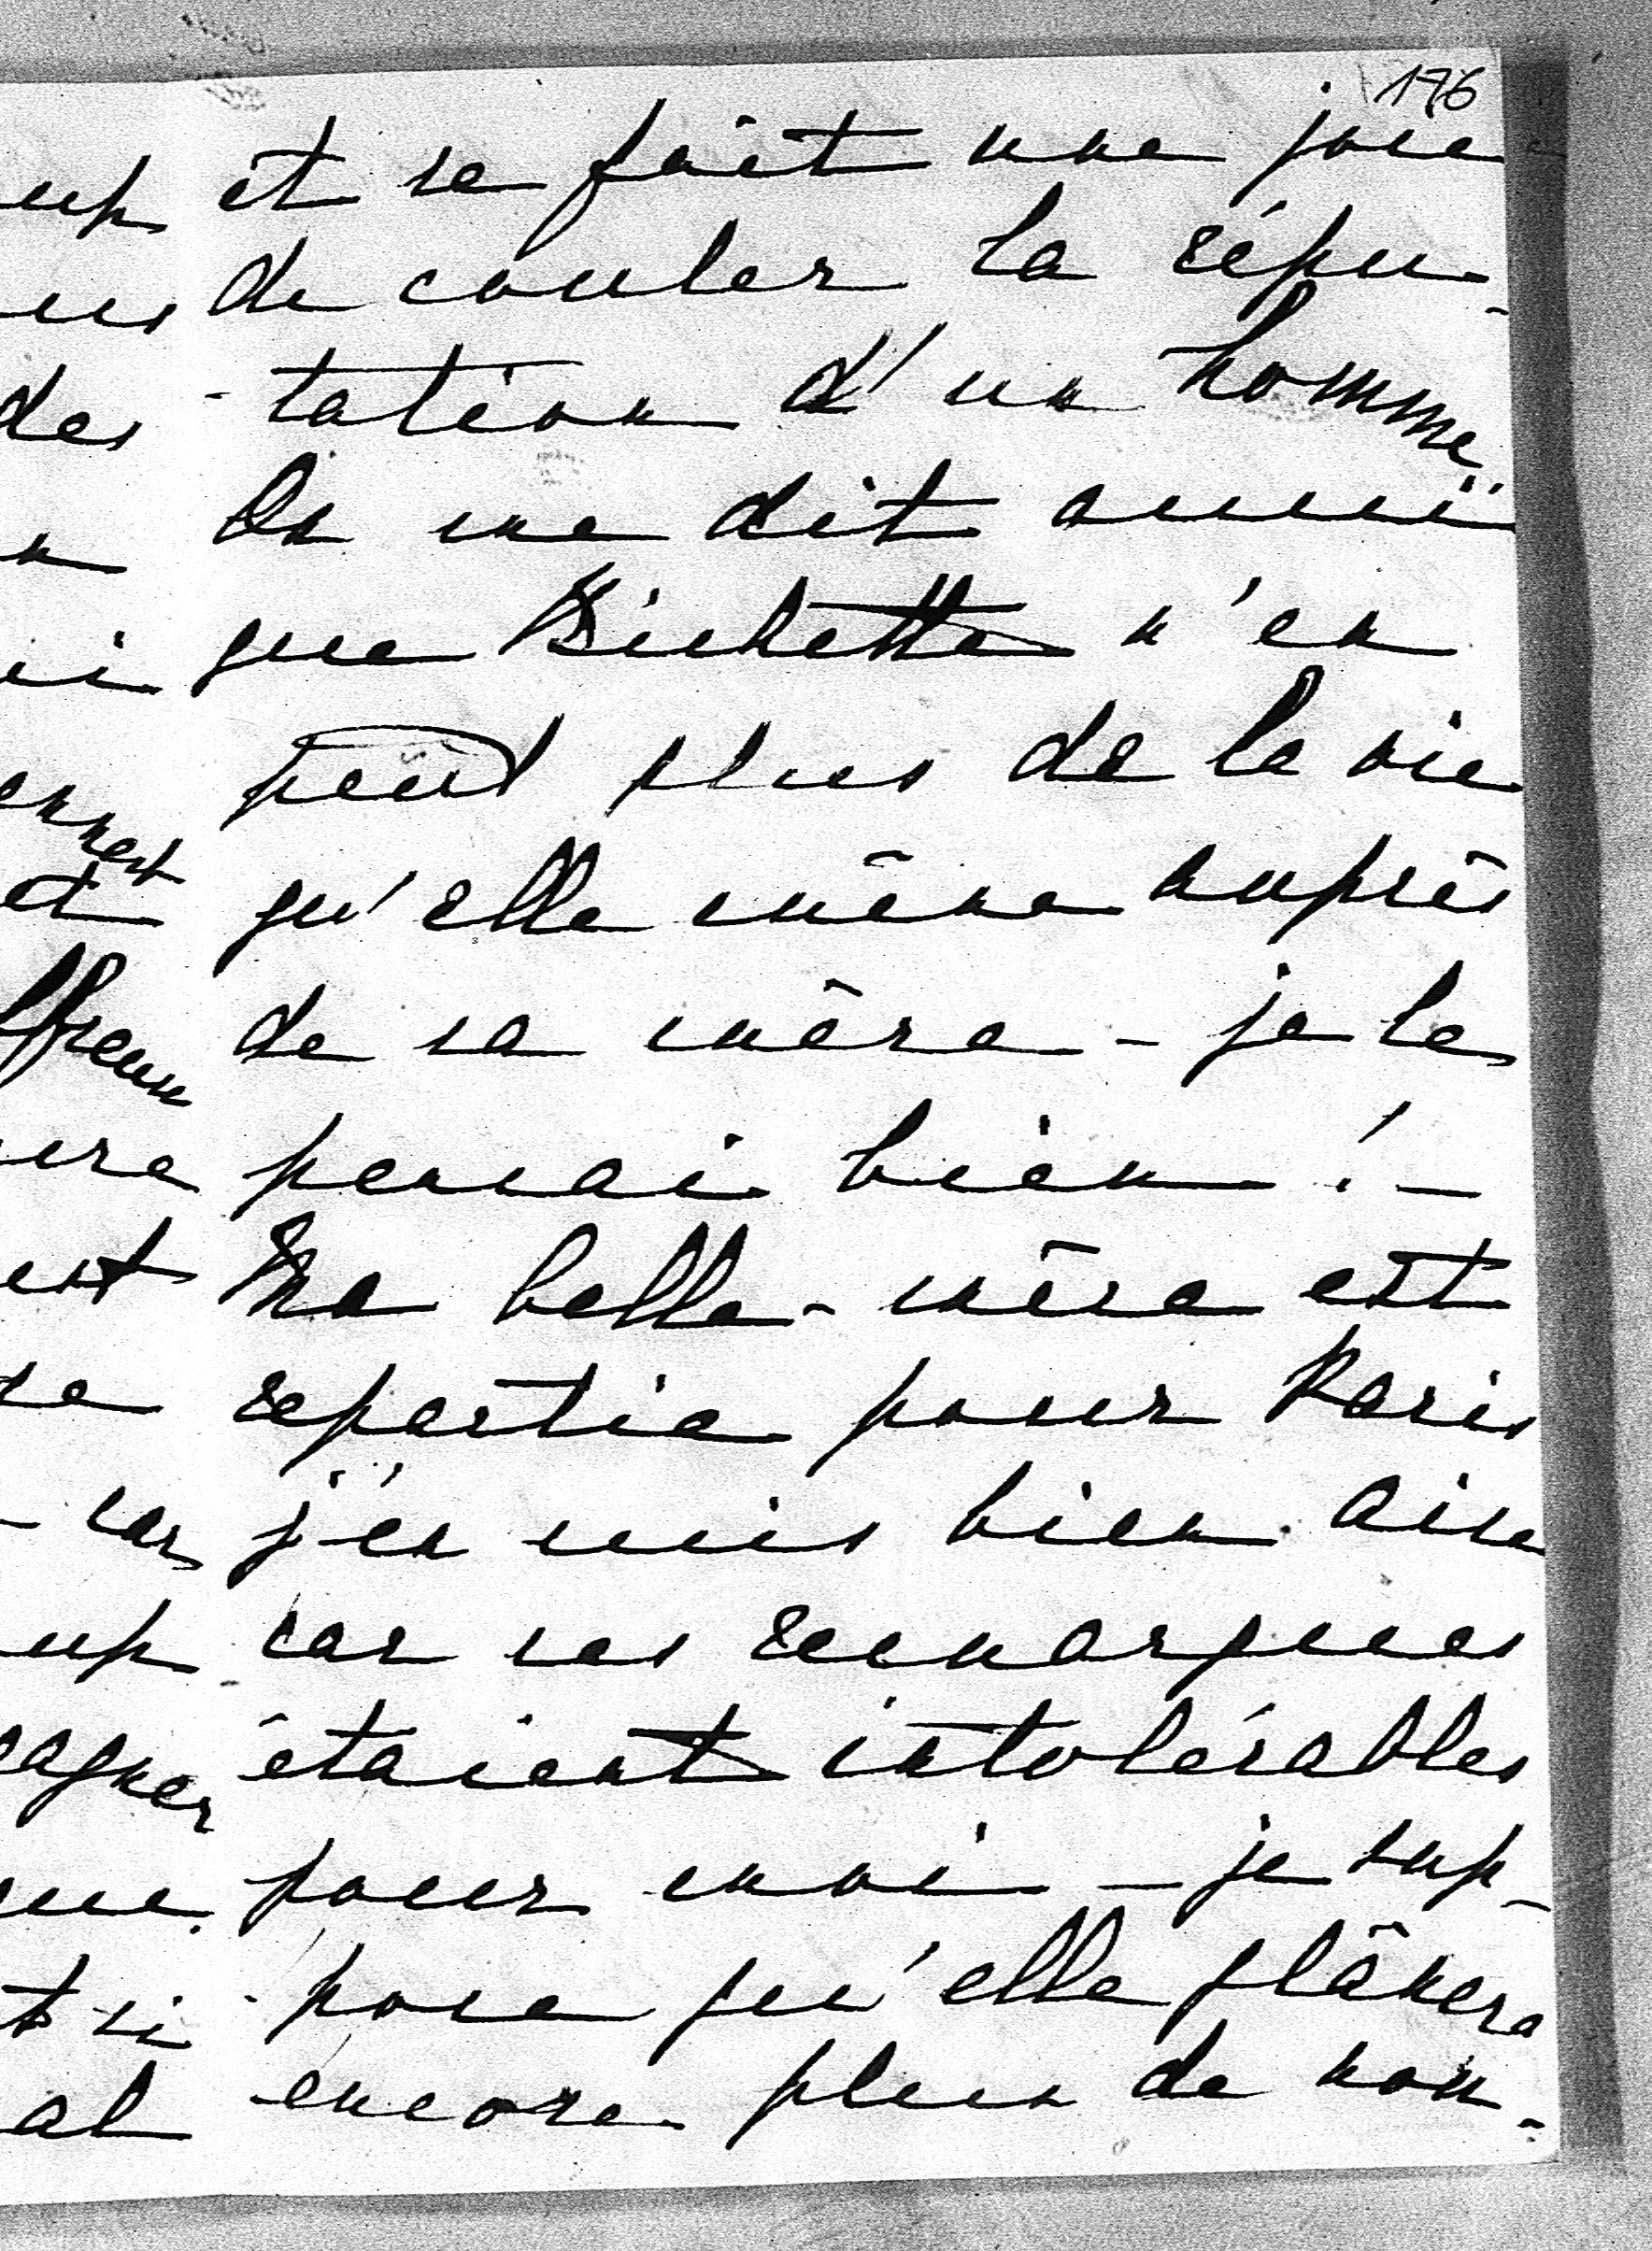 176
et se fait une joie
de couler la répu-
-tation d'un homme
On me dit aussi
que Bichette n'en
peut plus de la vie
qu'elle mène auprès
de sa mère - je le
pensai bien ! -
Ma belle-mère est
repartie pour Paris
j'en suis bien aise
car ses remarques
étaient intolérables
pour moi - je sup-
-pose qu'elle flânera
encore plus de non-